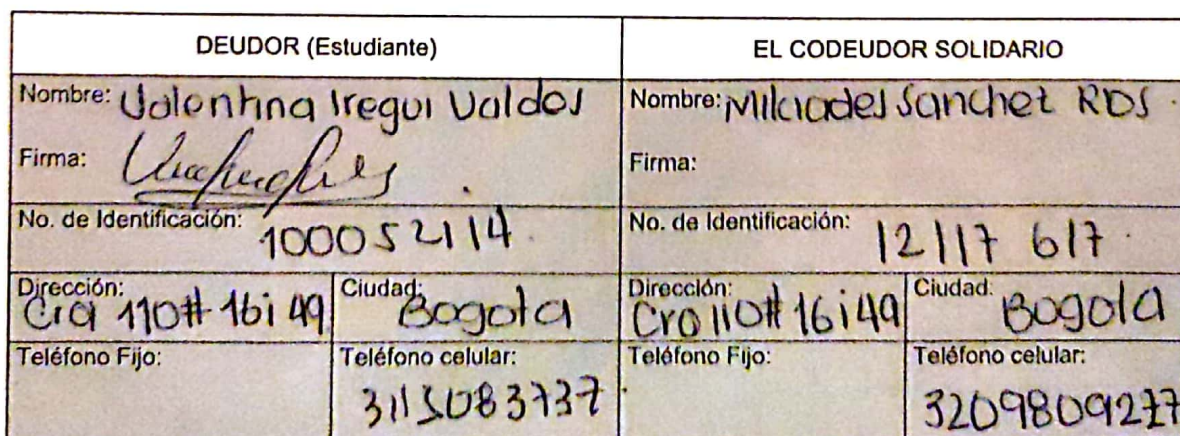 DEUDOR (Estudiante)
EL CODEUDOR SOLIDARIO
Nombre: Valentina Iregui Valdes
Nombre: Milciades Sanchez RDS.
Firma:
Firma:
No. de Identificación: 1000521114.
No. de Identificación: 12117 617
Dirección: Cra 110# 16i 49
Ciudad: Bogota
Dirección: Cra 110# 16i49
Ciudad: Bogota
Teléfono Fijo:
Teléfono celular: 3115083737
Teléfono Fijo:
Teléfono celular: 3209809277